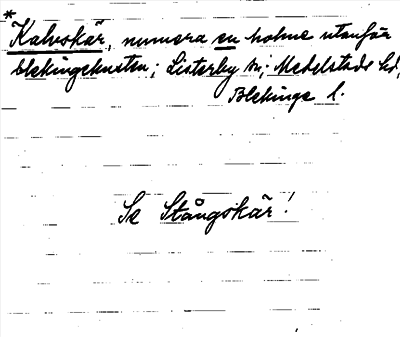 *
Kalvskär, numera en holme utanför
blekingekusten; Listerby sn; Medelstads hd,
Blekinge l.
Se Stångskär!